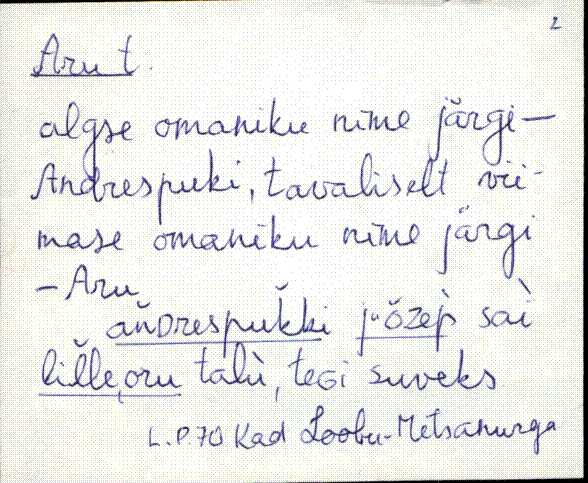 2
Aru t.
algse omaniku nime järgi —
Andrespuki, tavaliselt vii-
mase omaniku nime järgi
— Aru
añdrespuk̆ki j·ŏzep̀ sai
lil̆le͔oru talù, teGi suveks
L.P.70 Kad Loobu-Metsanurga